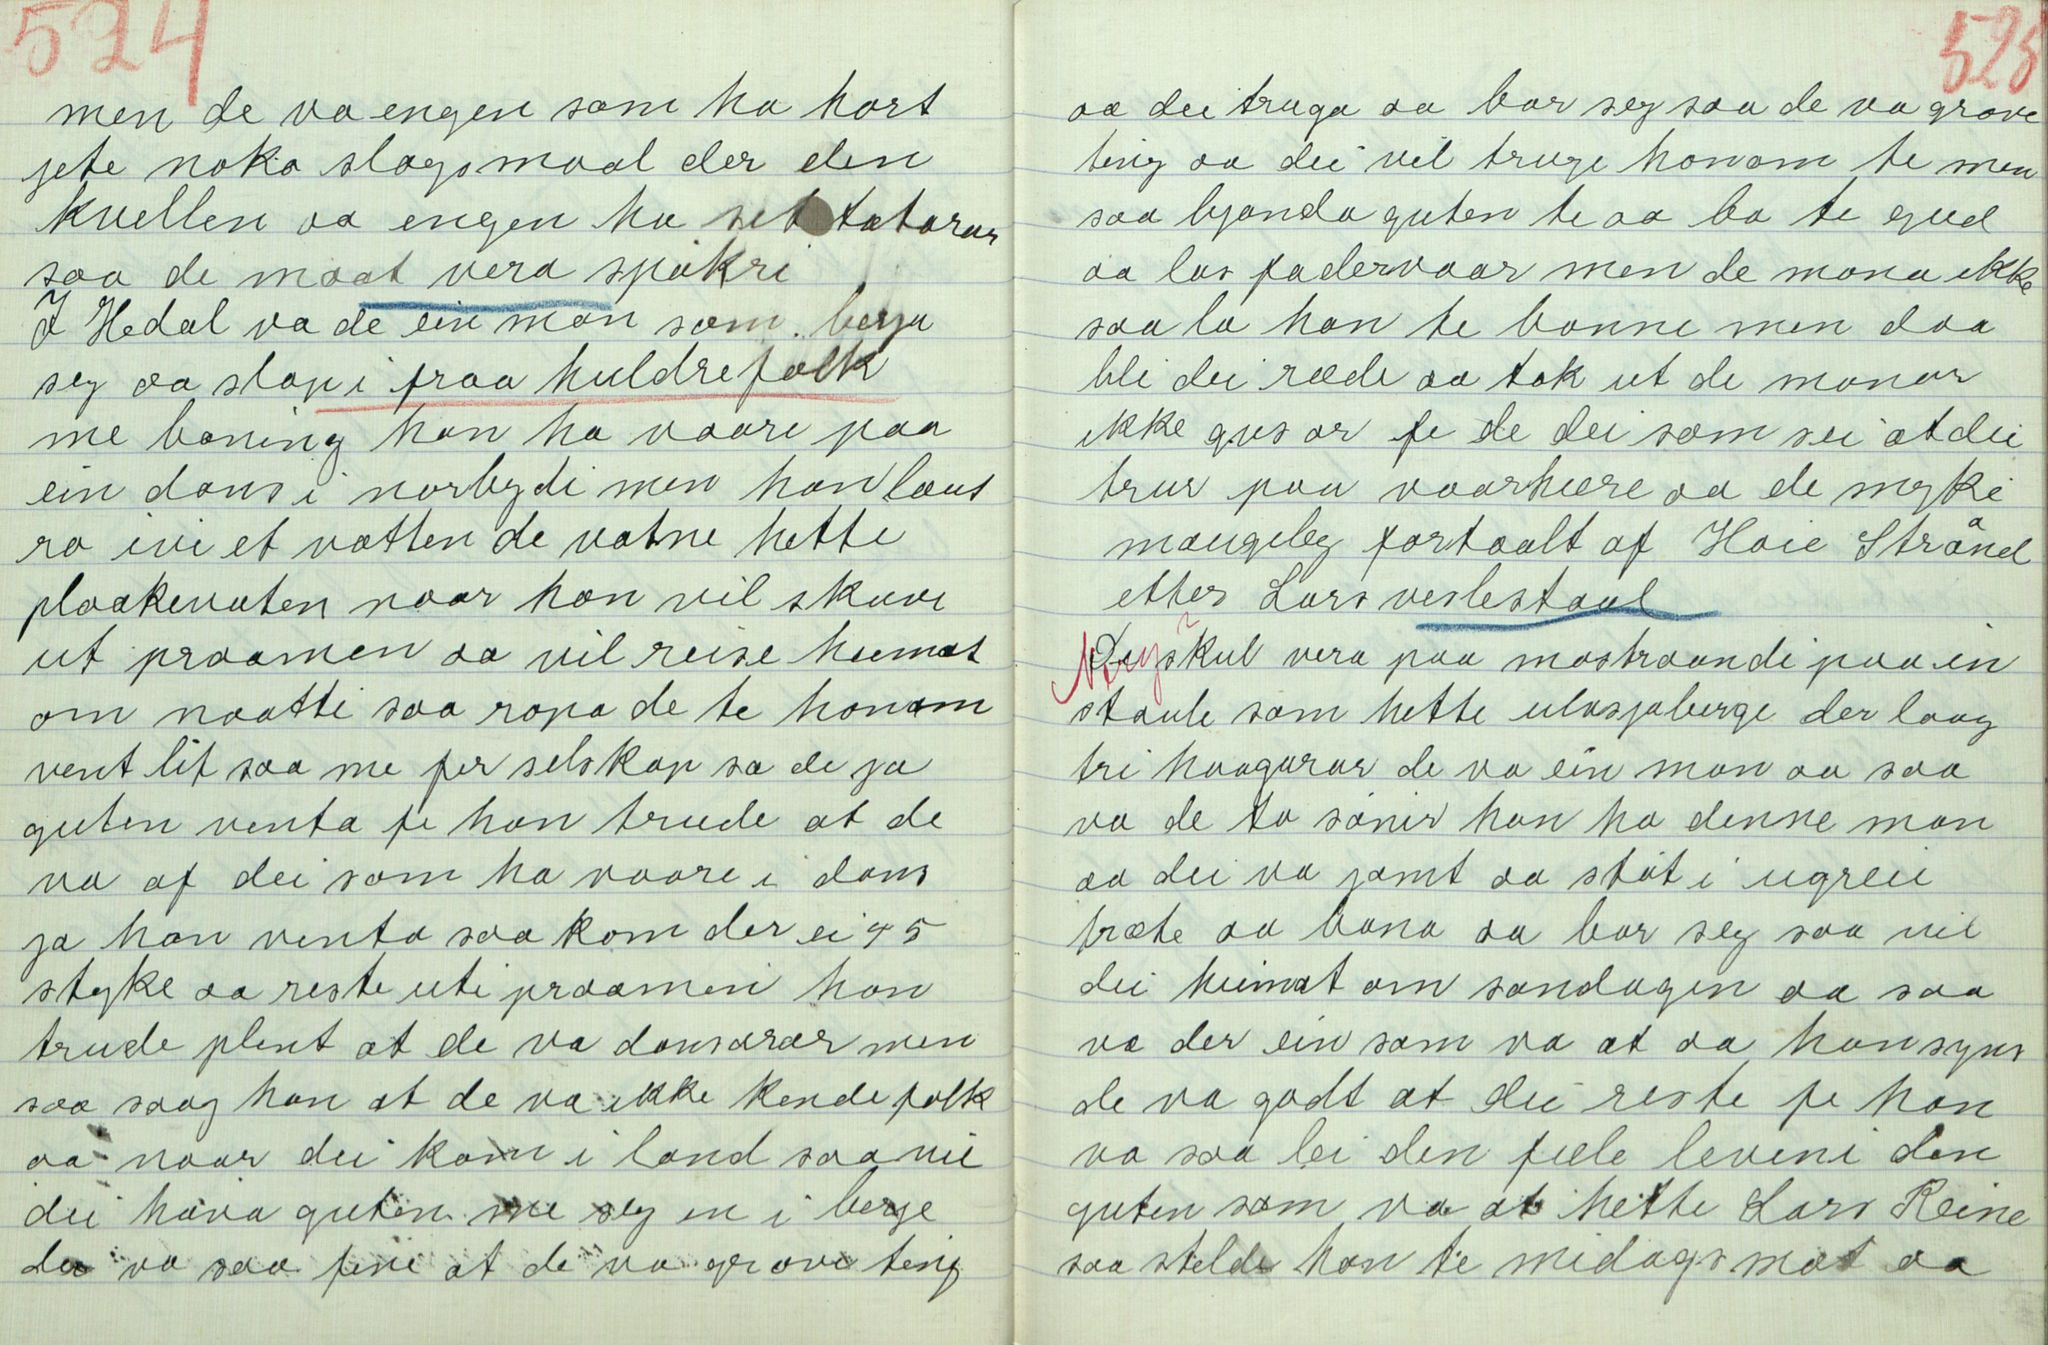 524
men de va engen som ha hørt
jete noko slagsmaal der den
kvellen aa engen ha set tatarar
saa de maat vera spøkri
I Hedal va de ein man som berga
seg aa slap i fraa huldrefolk
me bøning han ha vaare paa
ein dans i norbygdi men han laut
ro ivi et vatten de vatne hette
plaakevaten naar han vil skuve
ut praamen aa vil reise heimat
om naatti saa ropa de te honom
vent lit saa me fer selskap sa de ja
guten venta fe han trude at de
va af dei som ha vaare i dans
ja han venta saa kom der ei 4 5
styke aa reste uti praamen han
trude plent at de va dansarar men
saa saag han at de va ikke kende folk
aa naar dei kom i land saa vil
dei hava guten me seg in i berge
der va saa fine at de va grove ting
525
aa dei truga aa bar seg saa de va grove
ting aa dei vil truge honom te men
saa byanda guten te aa ba te gud
aa las fadervaar men de mona ikke
saa la han te banne men daa
bli dei ræde aa tok ut de monar
ikke gus or fe de dei som sei at dei
trur paa vaarherre aa de myke
mougeleg fortaalt af Hoie Strånd
etter Lars veslestaul
Nøy ? skul vera paa mostraandi paa in
staule som hette ulvsjaberge der laag
tri haagarar de va ein man aa saa
va de to sønir han ha denne man
aa dei va jamt aa støt i ugreii
træte aa bana aa bar seg saa vil
dei heimat om søndagen aa saa
va der ein som va at aa han syns
de va godt at dei reste fe han
va saa lei den fæle leveni den
guten som va at hette Lars Reine
saa stelde han te midagsmat aa